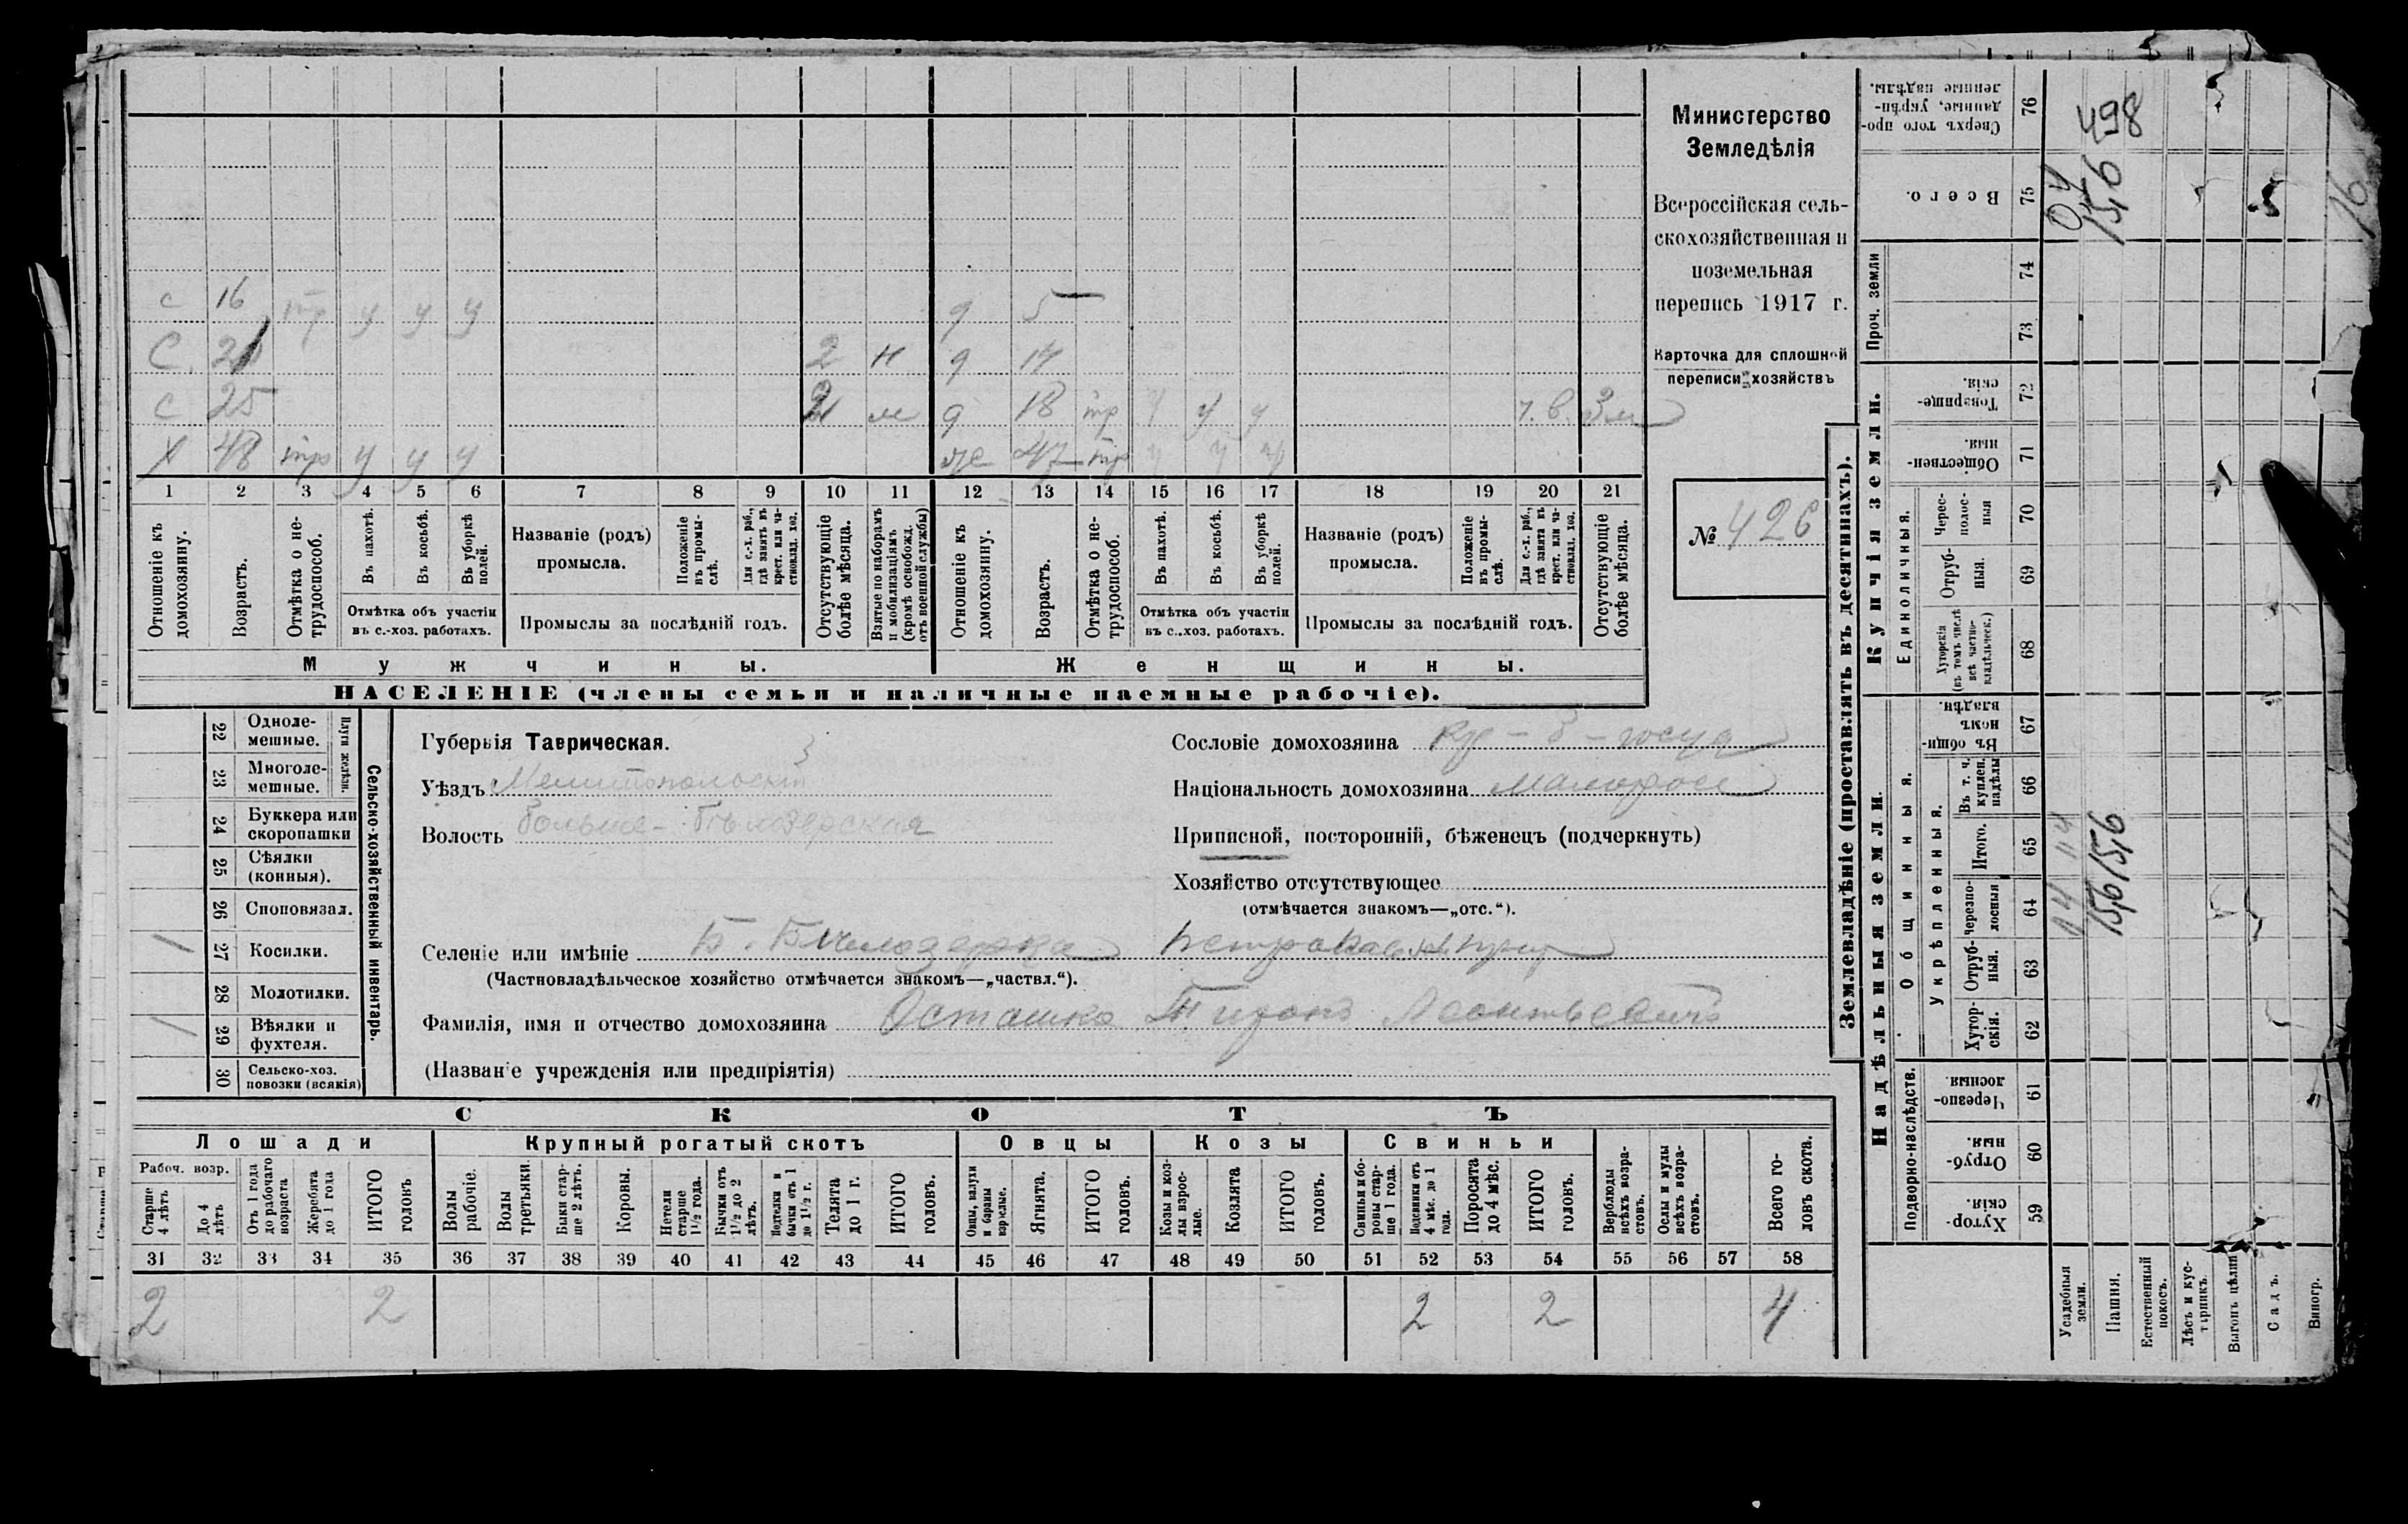 с 16 тр у у у д 5
С. 21 2 н д 14
с 25 2 м д 18 тр у у у
х 48 тр у у у же 47 тр
1 2 3 4 5 6 7 8 9 10 11 12 13 14 15 16 17 18 19 20 21
Отношеніе къ домохозяину.
Возрастъ.
Отмѣтка о нетрудоспособ.
Въ пахотѣ.
Въ косьбѣ.
Въ уборкѣ полей.
Отмѣтка объ участіи въ с.-хоз. работахъ.
Названіе (родъ) промысла.
Положеніе въ промыслѣ.
Для с.-х. раб., гдѣ занятъ въ крест. или частновлад. хоз.
Промыслы за послѣдній годъ.
Отсутствующіе болѣе мѣсяца.
Взятые по наборамъ и мобилизаціямъ (кромѣ освобожд. отъ военной службы)
Отношеніе къ домохозяину.
Возрастъ.
Отмѣтка о нетрудоспособ.
Въ пахотѣ.
Въ косьбѣ.
Въ уборкѣ полей.
Отмѣтка объ участіи въ с.-хоз. работахъ.
Названіе (родъ) промысла.
Положеніе въ промыслѣ.
Для с.-х. раб., гдѣ занята въ крест. или частновлад. хоз.
Промыслы за послѣдній годъ.
Отсутствующіе болѣе мѣсяца.
Мужчины.
Женщины.
НАСЕЛЕНІЕ (члены семьи и наличные наемные рабочіе).
Министерство
Земледѣлія
Всероссійская сель-
скохозяйственная и
поземельная
перепись 1917 г.
Карточка для сплошной
переписи хозяйствъ
№ 426
22 Одноле-мешные.
23 Многоле-мешные.
Плуги желѣзн.
24 Буккера или скоропашки
25 Сѣялки (конныя).
26 Сноповязал.
27 Косилки.
28 Молотилки.
29 Вѣялки и фухтеля.
30 Сельско-хоз. повозки (всякія)
Сельско-хозяйственный инвентарь.
Губернія Таврическая.
Уѣздъ Мелитопольскій
Волость Больше-Бѣлозерская
Сословіе домохозяина
Національность домохозяина малоросс
Приписной, посторонній, бѣженецъ (подчеркнуть)
Хозяйство отсутствующее
(отмѣчается знакомъ—„отс.“).
Селеніе или имѣніе Б. Бѣлозерка
(Частновладѣльческое хозяйство отмѣчается знакомъ—„частвл.“).
Фамилія, имя и отчество домохозяина Осташко Тихонъ Леонтьевичъ
(Названіе учрежденія или предпріятія)
СКОТЪ
Лошади
Крупный рогатый скотъ
Овцы
Козы
Свиньи
Рабоч. возр.
Старше 4 лѣтъ
До 4 лѣтъ
Отъ 1 года до рабочаго возраста
Жеребята до 1 года
ИТОГО головъ
Волы рабочіе.
Волы третьяки.
Быки старше 2 лѣтъ.
Коровы.
Нетели старше 1½ года.
Бычки отъ 1½ до 2 лѣтъ.
Подтелки и бычки отъ 1 до 1½ г.
Телята до 1 г.
ИТОГО головъ.
Овцы, валухи и бараны взрослые.
Ягнята.
ИТОГО головъ.
Козы и козлы взрослые.
Козлята
ИТОГО головъ.
Свиньи и боровы старше 1 года.
Подсвинки отъ 4 мѣс. до 1 года.
Поросята до 4 мѣс.
ИТОГО головъ.
Верблюды всѣхъ возрастовъ.
Ослы и мулы всѣхъ возрастовъ.
Всего головъ скота.
31 32 33 34 35 36 37 38 39 40 41 42 43 44 45 46 47 48 49 50 51 52 53 54 55 56 57 58
2 2 2 2 4
Землевладѣніе (проставлять въ десятинахъ).
Купчія земли.
Проч. земли
Сверхъ того проданные, укрѣпленные надѣлы. 76
Всего. 75
74
73
Товарищескія. 72
Общественныя. 71
Единоличныя.
Чересполосныя 70
Отрубныя. 69
Хуторскія (въ томъ числѣ всѣ частновладѣльческ.) 68
Надѣльныя земли.
Общинныя.
Въ общинномъ владѣн. 67
Укрѣпленныя.
Въ т. ч. куплен. надѣлы 66
Итого. 65
Черезполосныя 64
Отрубныя. 63
Хуторскія. 62
Подворно-наслѣдств.
Черезполосныя. 61
Отрубныя. 60
Хуторскія. 59
Усадебныя земли.
Пашня.
Естественный покосъ.
Лѣсъ и кустарникъ.
Выгонъ цѣлин
Садъ.
Виногр.
498
04
1596